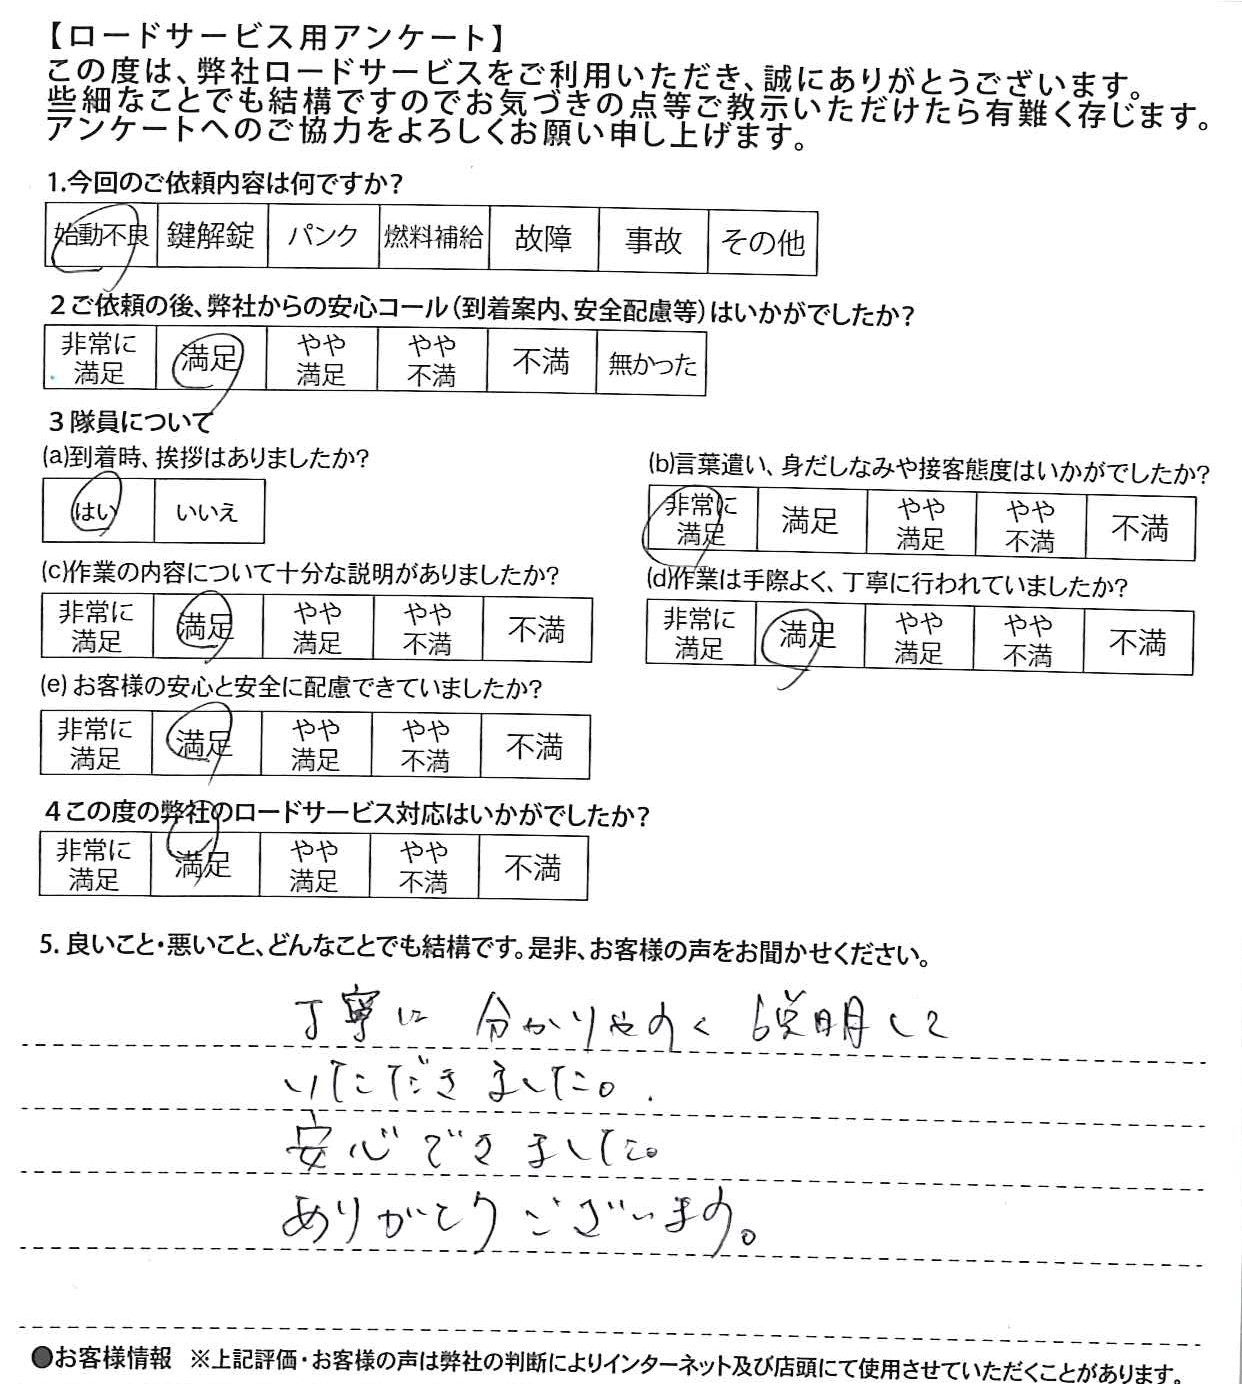 【ロードサービス用アンケート】
この度は、弊社ロードサービスをご利用いただき、誠にありがとうございます。
些細なことでも結構ですのでお気づきの点等ご教示いただけたら有難く存じます。
アンケートへのご協力をよろしくお願い申し上げます。
1.今回のご依頼内容は何ですか?
始動不良 鍵解錠 パンク 燃料補給 故障 事故 その他
2ご依頼の後、弊社からの安心コール(到着案内、安全配慮等)はいかがでしたか?
非常に満足 満足 やや満足 やや不満 不満 無かった
3隊員について
(a)到着時、挨拶はありましたか?
はい いいえ
(b)言葉遣い、身だしなみや接客態度はいかがでしたか?
非常に満足 満足 やや満足 やや不満 不満
(c)作業の内容について十分な説明がありましたか?
非常に満足 満足 やや満足 やや不満 不満
(d)作業は手際よく、丁寧に行われていましたか?
非常に満足 満足 やや満足 やや不満 不満
(e)お客様の安心と安全に配慮できていましたか?
非常に満足 満足 やや満足 やや不満 不満
4この度の弊社のロードサービス対応はいかがでしたか?
非常に満足 満足 やや満足 やや不満 不満
5.良いこと・悪いこと、どんなことでも結構です。是非、お客様の声をお聞かせください。
丁寧に 分かりやすく 説明して
いただきました。
安心できました。
ありがとうございます。
●お客様情報 ※上記評価・お客様の声は弊社の判断によりインターネット及び店頭にて使用させていただくことがあります。